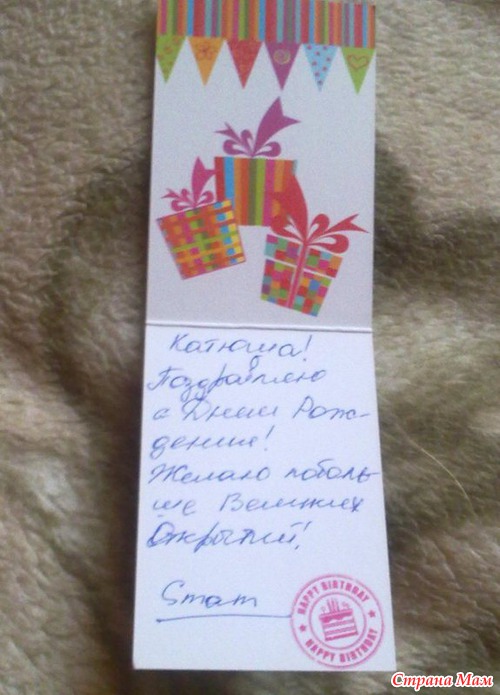 Катюша!
Поздравляю
с Днём Рож-
дения!
Желаю поболь-
ше Великих
Открытий!
Smam
HAPPY BIRTHDAY
HAPPY BIRTHDAY
Страна Мам